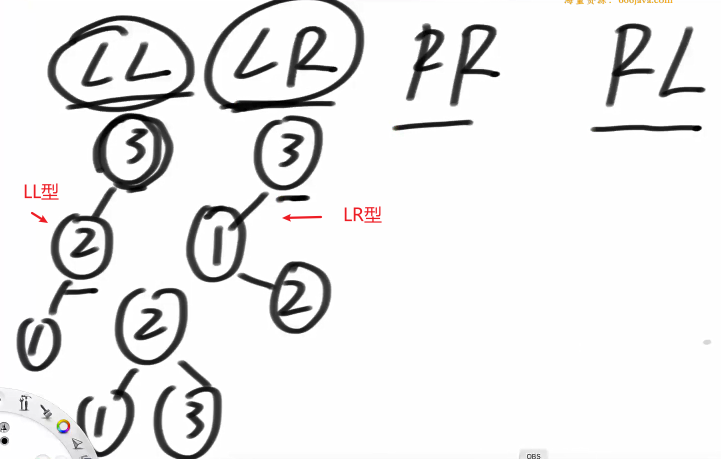 海量资源：666java.com
LL LR RR RL
3 3
LL型
LR型
2 1
2
1 2
1 3
OBS